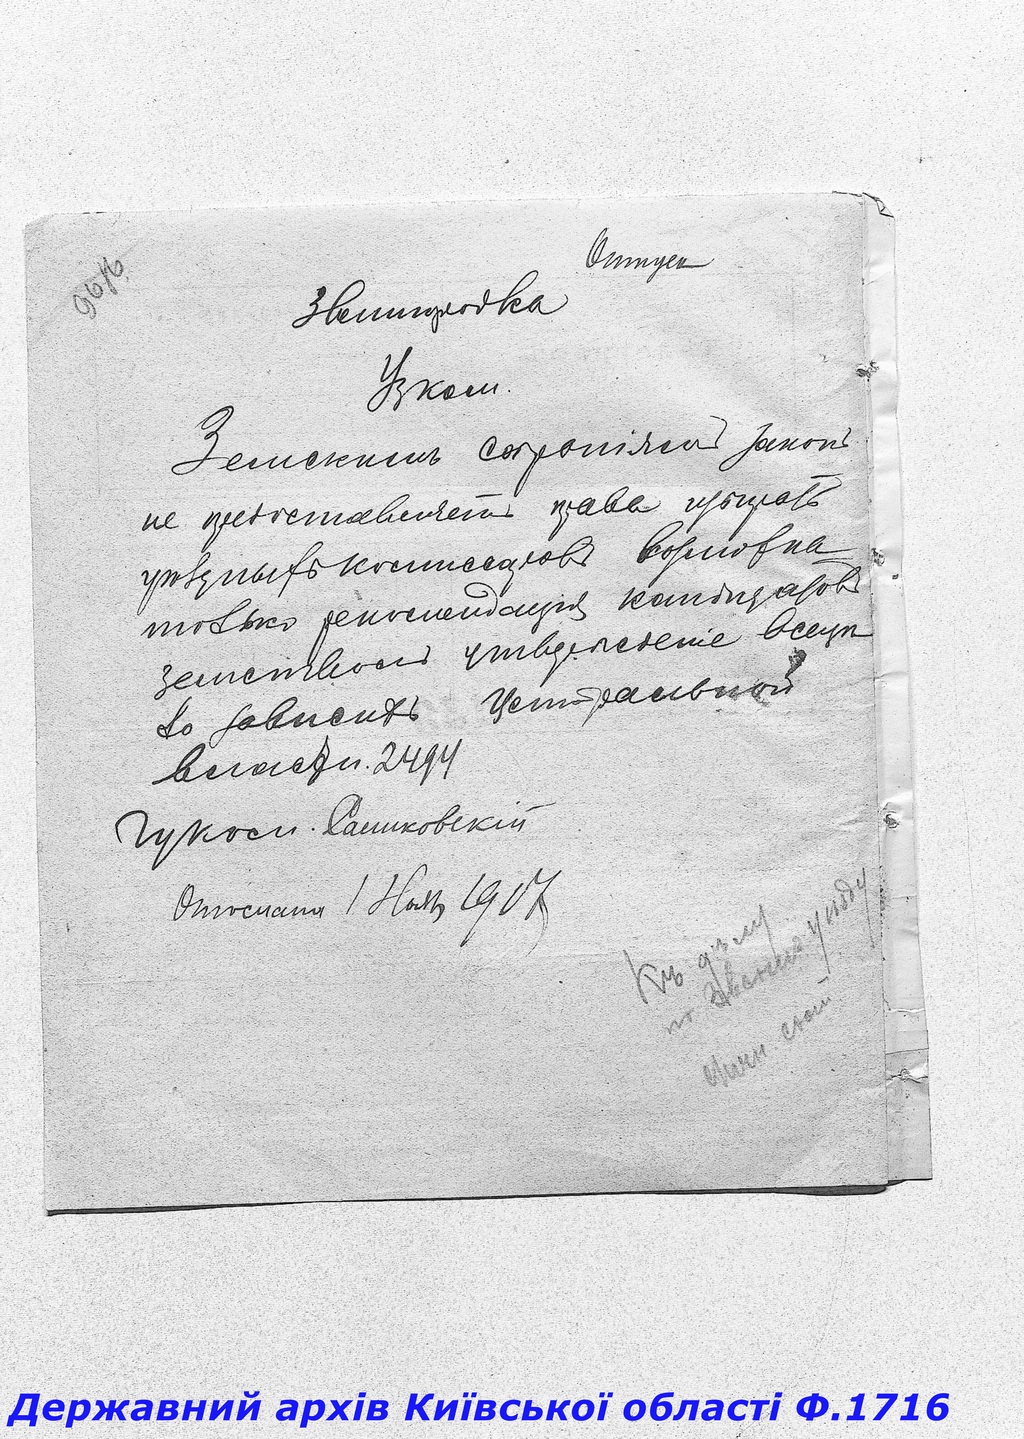 Отпуск
Звенигородка
Укком.
Земским собраніям закон
не предоставляетъ права избирать
уездныхъ комиссаров возможна
только рекомендация кандидатов
земством утверждение всеце
ло зависитъ Центральной
власти. 2494
Гуком. Саликовскій
Отослана 1 Нояб 1917
Къ делу
по Звениг. уезду
Державний архів Київської області Ф.1716